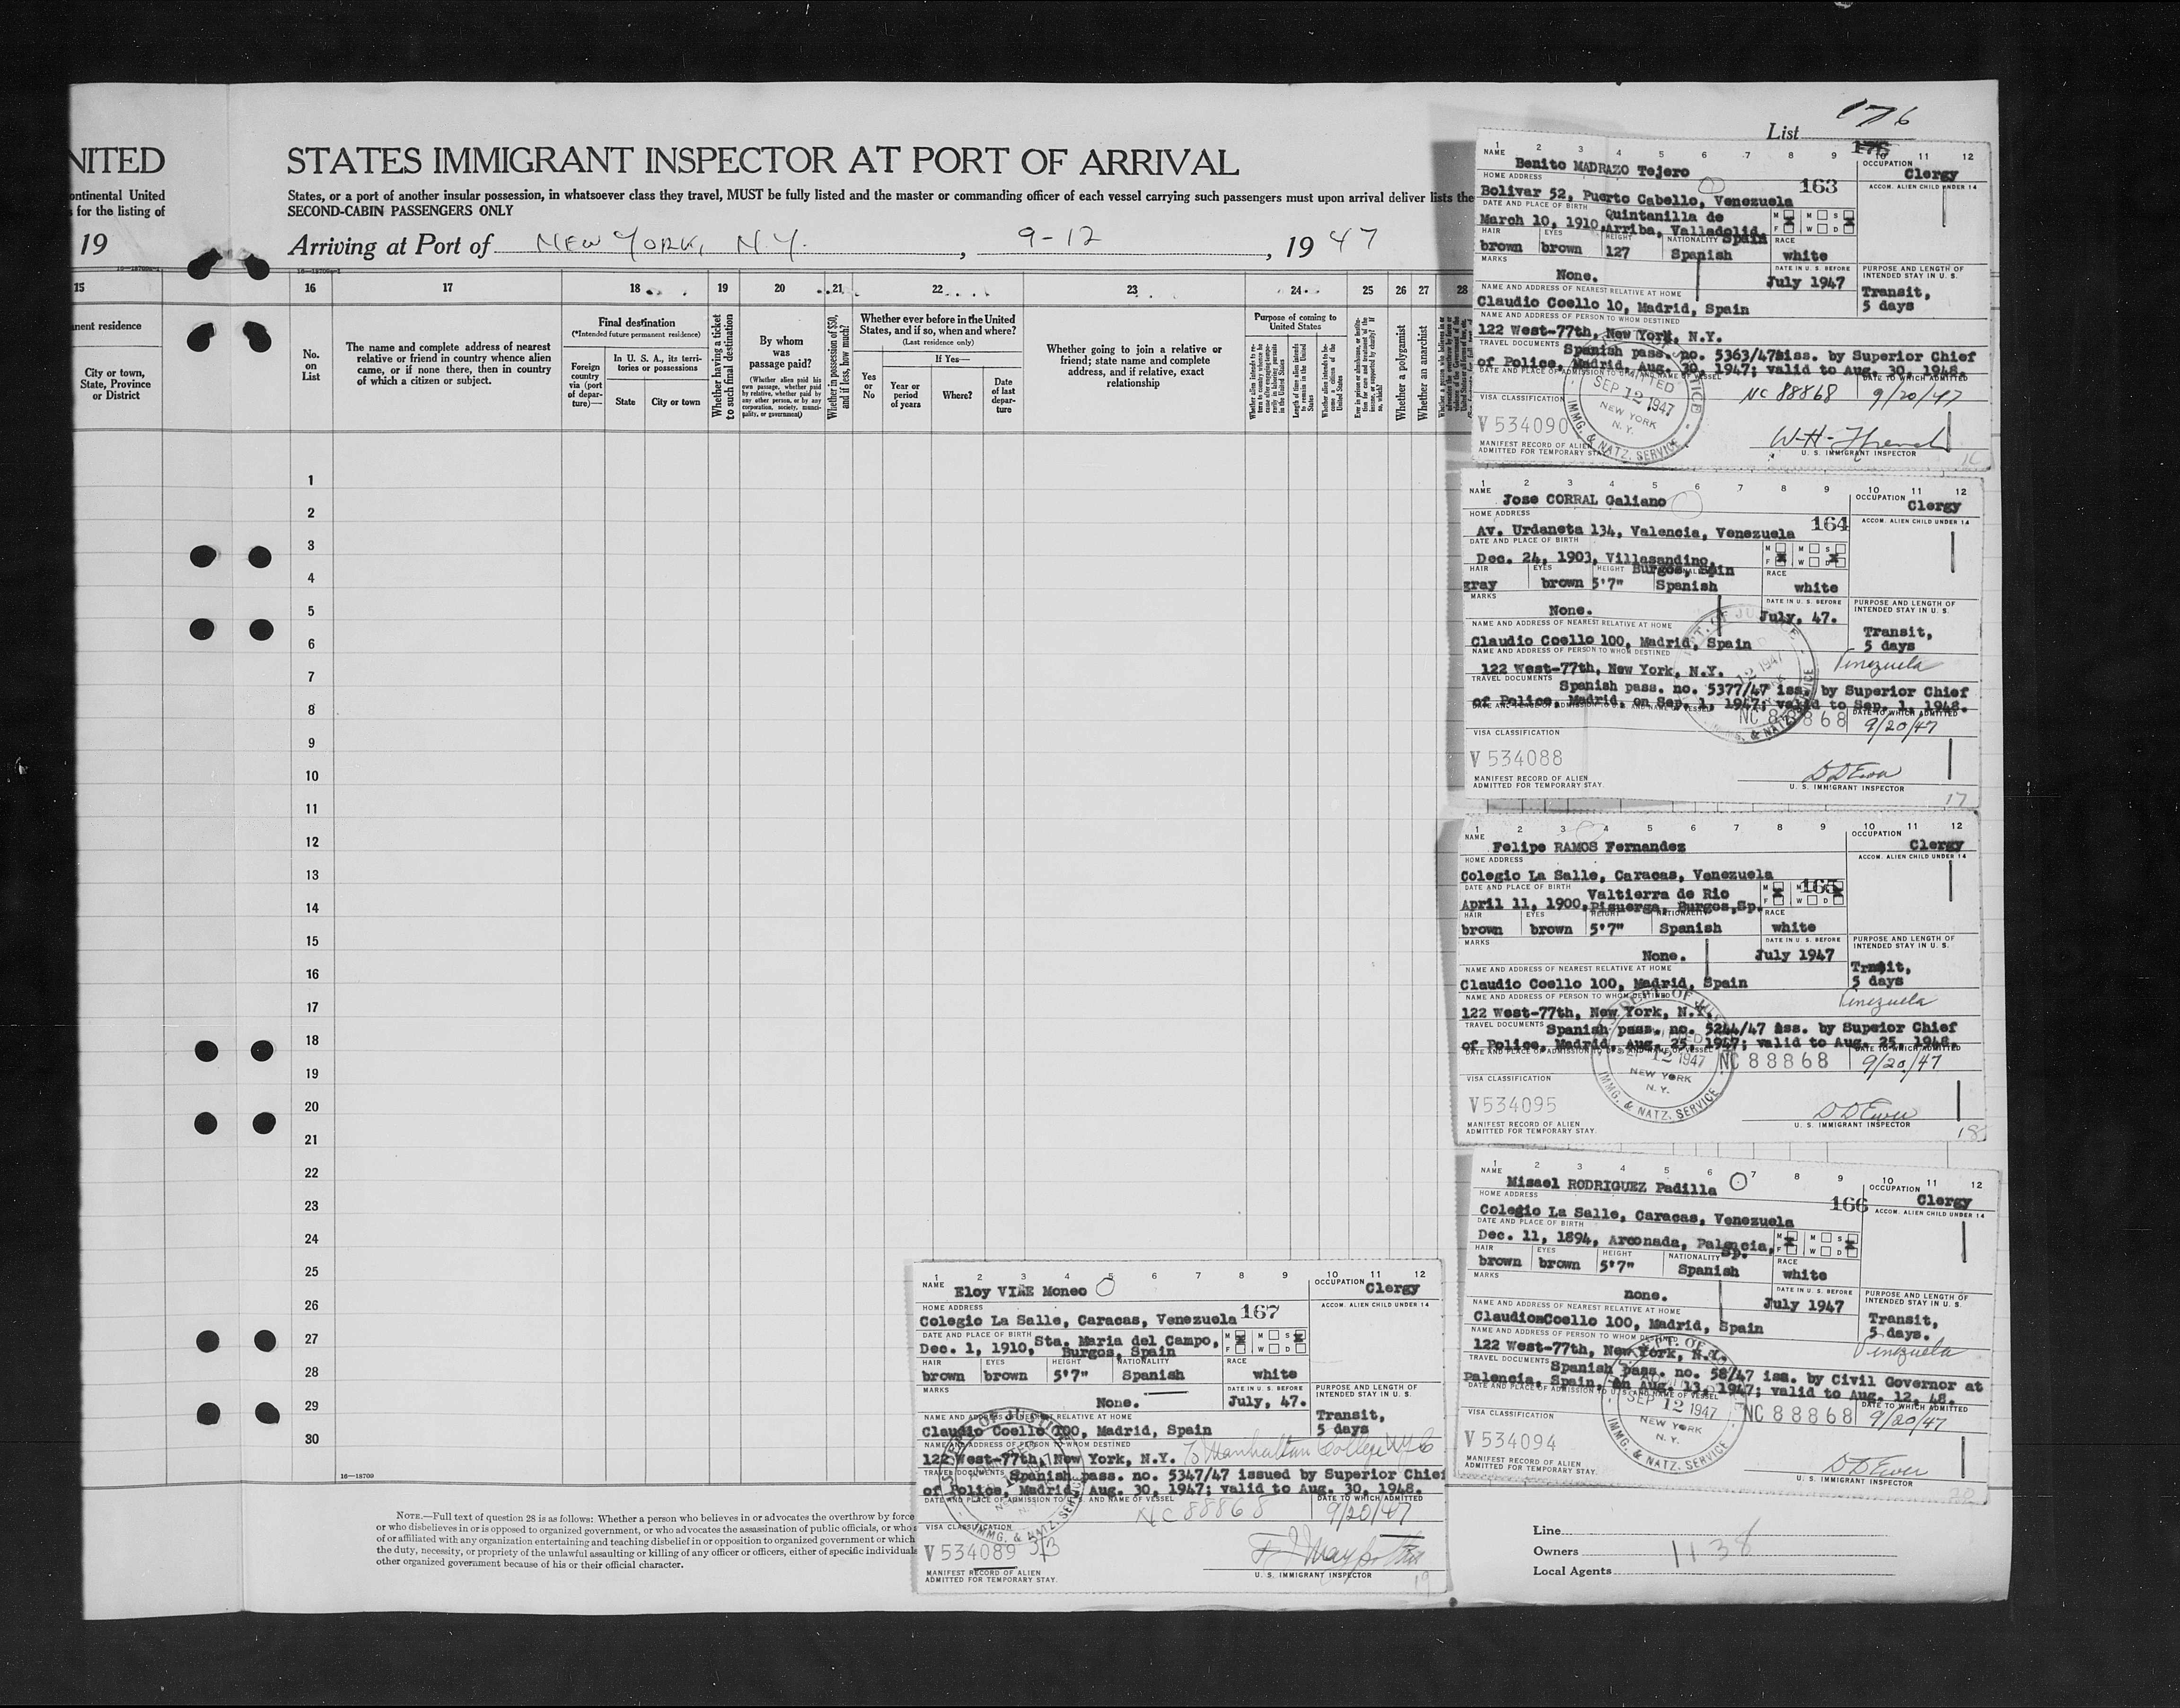 List 176
NITED
STATES IMMIGRANT INSPECTOR AT PORT OF ARRIVAL
ontinental United
s for the listing of
19
States, or a port of another insular possession, in whatsoever class they travel, MUST be fully listed and the master or commanding officer of each vessel carrying such passengers must upon arrival deliver lists the
SECOND-CABIN PASSENGERS ONLY
Arriving at Port of NEW YORK, N.Y., 9-12, 1947
15
nent residence
City or town,
State, Province
or District
16
No.
on
List
17
The name and complete address of nearest
relative or friend in country whence alien
came, or if none there, then in country
of which a citizen or subject.
18
Final destination
(*Intended future permanent residence)
Foreign
country
via (port
of depar-
ture)—
In U. S. A., its terri-
tories or possessions
State
City or town
19
Whether having a ticket
to such final destination
20
By whom
was
passage paid?
(Whether alien paid his
own passage, whether paid
by relative, whether paid by
any other person, or by any
corporation, society, munici-
pality, or government)
21
Whether in possession of $50,
and if less, how much?
22
Whether ever before in the United
States, and if so, when and where?
(Last residence only)
Yes
or
No
If Yes—
Year or
period
of years
Where?
Date
of last
depar-
ture
23
Whether going to join a relative or
friend; state name and complete
address, and if relative, exact
relationship
24
Purpose of coming to
United States
25
26
Whether a polygamist
27
Whether an anarchist
28
1
2
3
4
5
6
7
8
9
10
11
12
13
14
15
16
17
18
19
20
21
22
23
24
25
26
27
28
29
30
16—18709
NOTE.—Full text of question 28 is as follows: Whether a person who believes in or advocates the overthrow by force
or who disbelieves in or is opposed to organized government, or who advocates the assassination of public officials, or who
of or affiliated with any organization entertaining and teaching disbelief in or opposition to organized government or which
the duty, necessity, or propriety of the unlawful assaulting or killing of any officer or officers, either of specific individuals
other organized government because of his or their official character.
1 2 3 4 5 6 7 8 9 10 11 12
NAME Benito MADRAZO Tejero
OCCUPATION Clergy
HOME ADDRESS 163
ACCOM. ALIEN CHILD UNDER 14
Bolivar 52, Puerto Cabello, Venezuela
DATE AND PLACE OF BIRTH Quintanilla de
March 10, 1910, Arriba, Valladolid,
Spain
M F M W S D
HAIR EYES HEIGHT NATIONALITY RACE
brown brown 127 Spanish white
MARKS None.
DATE IN U. S. BEFORE July 1947
PURPOSE AND LENGTH OF
INTENDED STAY IN U. S.
Transit,
5 days
NAME AND ADDRESS OF NEAREST RELATIVE AT HOME
Claudio Coello 10, Madrid, Spain
NAME AND ADDRESS OF PERSON TO WHOM DESTINED
122 West-77th, New York, N.Y.
TRAVEL DOCUMENTS Spanish pass. no. 5363/47 iss. by Superior Chief
of Police, Madrid, Aug. 30, 1947; valid to Aug. 30, 1948.
DATE AND PLACE OF ADMISSION TO U. S. AND NAME OF VESSEL
DATE TO WHICH ADMITTED
NC 88868 9/20/47
ADMITTED
SEP 12 1947
NEW YORK
N. Y.
IMMG. & NATZ. SERVICE
VISA CLASSIFICATION
V 534090
MANIFEST RECORD OF ALIEN
ADMITTED FOR TEMPORARY STAY
U. S. IMMIGRANT INSPECTOR
16
1 2 3 4 5 6 7 8 9 10 11 12
NAME Jose CORRAL Galiano
OCCUPATION Clergy
HOME ADDRESS 164
ACCOM. ALIEN CHILD UNDER 14
Av. Urdaneta 134, Valencia, Venezuela
DATE AND PLACE OF BIRTH
Dec. 24, 1903, Villasandino,
Burgos, Spain
M F M W S D
HAIR EYES HEIGHT NATIONALITY RACE
gray brown 5'7" Spanish white
MARKS None.
DATE IN U. S. BEFORE July, 47.
PURPOSE AND LENGTH OF
INTENDED STAY IN U. S.
Transit,
5 days
Venezuela
NAME AND ADDRESS OF NEAREST RELATIVE AT HOME
Claudio Coello 100, Madrid, Spain
NAME AND ADDRESS OF PERSON TO WHOM DESTINED
122 West-77th, New York, N.Y.
TRAVEL DOCUMENTS Spanish pass. no. 5377/47 iss. by Superior Chief
of Police, Madrid, on Sep. 1, 1947; valid to Sep. 1, 1948.
DATE AND PLACE OF ADMISSION TO U. S. AND NAME OF VESSEL
DATE TO WHICH ADMITTED
NC 88868 9/20/47
VISA CLASSIFICATION
V 534088
MANIFEST RECORD OF ALIEN
ADMITTED FOR TEMPORARY STAY.
DDEwer
U. S. IMMIGRANT INSPECTOR
17
1 2 3 4 5 6 7 8 9 10 11 12
NAME Felipe RAMOS Fernandez
OCCUPATION Clergy
HOME ADDRESS
ACCOM. ALIEN CHILD UNDER 14
Colegio La Salle, Caracas, Venezuela
165
DATE AND PLACE OF BIRTH Valtierra de Rio
April 11, 1900, Pisuerga, Burgos, Sp.
M F M W S D
HAIR EYES HEIGHT NATIONALITY RACE
brown brown 5'7" Spanish white
MARKS None.
DATE IN U. S. BEFORE July 1947
PURPOSE AND LENGTH OF
INTENDED STAY IN U. S.
5 days
Venezuela
NAME AND ADDRESS OF NEAREST RELATIVE AT HOME
Claudio Coello 100, Madrid, Spain
NAME AND ADDRESS OF PERSON TO WHOM DESTINED
122 West-77th, New York, N.Y.
TRAVEL DOCUMENTS Spanish pass. no. 5244/47 iss. by Supeior Chief
of Police, Madrid, Aug. 25, 1947; valid to Aug. 25, 1948.
DATE AND PLACE OF ADMISSION TO U. S. AND NAME OF VESSEL
DATE TO WHICH ADMITTED
SEP 12 1947
NEW YORK
N. Y.
IMMG. & NATZ. SERVICE
NC 88868 9/20/47
VISA CLASSIFICATION
V534095
MANIFEST RECORD OF ALIEN
ADMITTED FOR TEMPORARY STAY.
DDEwer
U. S. IMMIGRANT INSPECTOR
18
1 2 3 4 5 6 7 8 9 10 11 12
NAME Misael RODRIGUEZ Padilla
OCCUPATION Clergy
HOME ADDRESS 166
ACCOM. ALIEN CHILD UNDER 14
Colegio La Salle, Caracas, Venezuela
DATE AND PLACE OF BIRTH
Dec. 11, 1894, Arconada, Palencia,
Sp.
M F M W S D
HAIR EYES HEIGHT NATIONALITY RACE
brown brown 5'7" Spanish white
MARKS none.
DATE IN U. S. BEFORE July 1947
PURPOSE AND LENGTH OF
INTENDED STAY IN U. S.
Transit,
5 days.
Venezuela
NAME AND ADDRESS OF NEAREST RELATIVE AT HOME
Claudio Coello 100, Madrid, Spain
NAME AND ADDRESS OF PERSON TO WHOM DESTINED
122 West-77th, New York, N.Y.
TRAVEL DOCUMENTS Spanish pass. no. 58/47 iss. by Civil Governor at
Palencia, Spain, on Aug. 13, 1947; valid to Aug. 12, 48.
DATE AND PLACE OF ADMISSION TO U. S. AND NAME OF VESSEL
DATE TO WHICH ADMITTED
SEP 12 1947
NEW YORK
N. Y.
IMMG. & NATZ. SERVICE
NC 88868 9/20/47
VISA CLASSIFICATION
V 534094
MANIFEST RECORD OF ALIEN
ADMITTED FOR TEMPORARY STAY.
DDEwer
U. S. IMMIGRANT INSPECTOR
20
1 2 3 4 5 6 7 8 9 10 11 12
NAME Eloy Moneo
OCCUPATION Clergy
HOME ADDRESS 167
ACCOM. ALIEN CHILD UNDER 14
Colegio La Salle, Caracas, Venezuela
DATE AND PLACE OF BIRTH Sta. Maria del Campo,
Dec. 1, 1910, Burgos, Spain
M F M W S D
HAIR EYES HEIGHT NATIONALITY RACE
brown brown 5'7" Spanish white
MARKS None.
DATE IN U. S. BEFORE July, 47.
PURPOSE AND LENGTH OF
INTENDED STAY IN U. S.
Transit,
5 days
NAME AND ADDRESS OF NEAREST RELATIVE AT HOME
Claudio Coello 100, Madrid, Spain
NAME AND ADDRESS OF PERSON TO WHOM DESTINED
122 West-77th, New York, N.Y. To Manhattan College NYC
TRAVEL DOCUMENTS Spanish pass. no. 5347/47 issued by Superior Chief
of Police, Madrid, Aug. 30, 1947; valid to Aug. 30, 1948.
DATE AND PLACE OF ADMISSION TO U. S. AND NAME OF VESSEL
DATE TO WHICH ADMITTED
NC 88868 9/20/47
VISA CLASSIFICATION
V 534089
MANIFEST RECORD OF ALIEN
ADMITTED FOR TEMPORARY STAY.
U. S. IMMIGRANT INSPECTOR
19
Line
Owners 1138
Local Agents